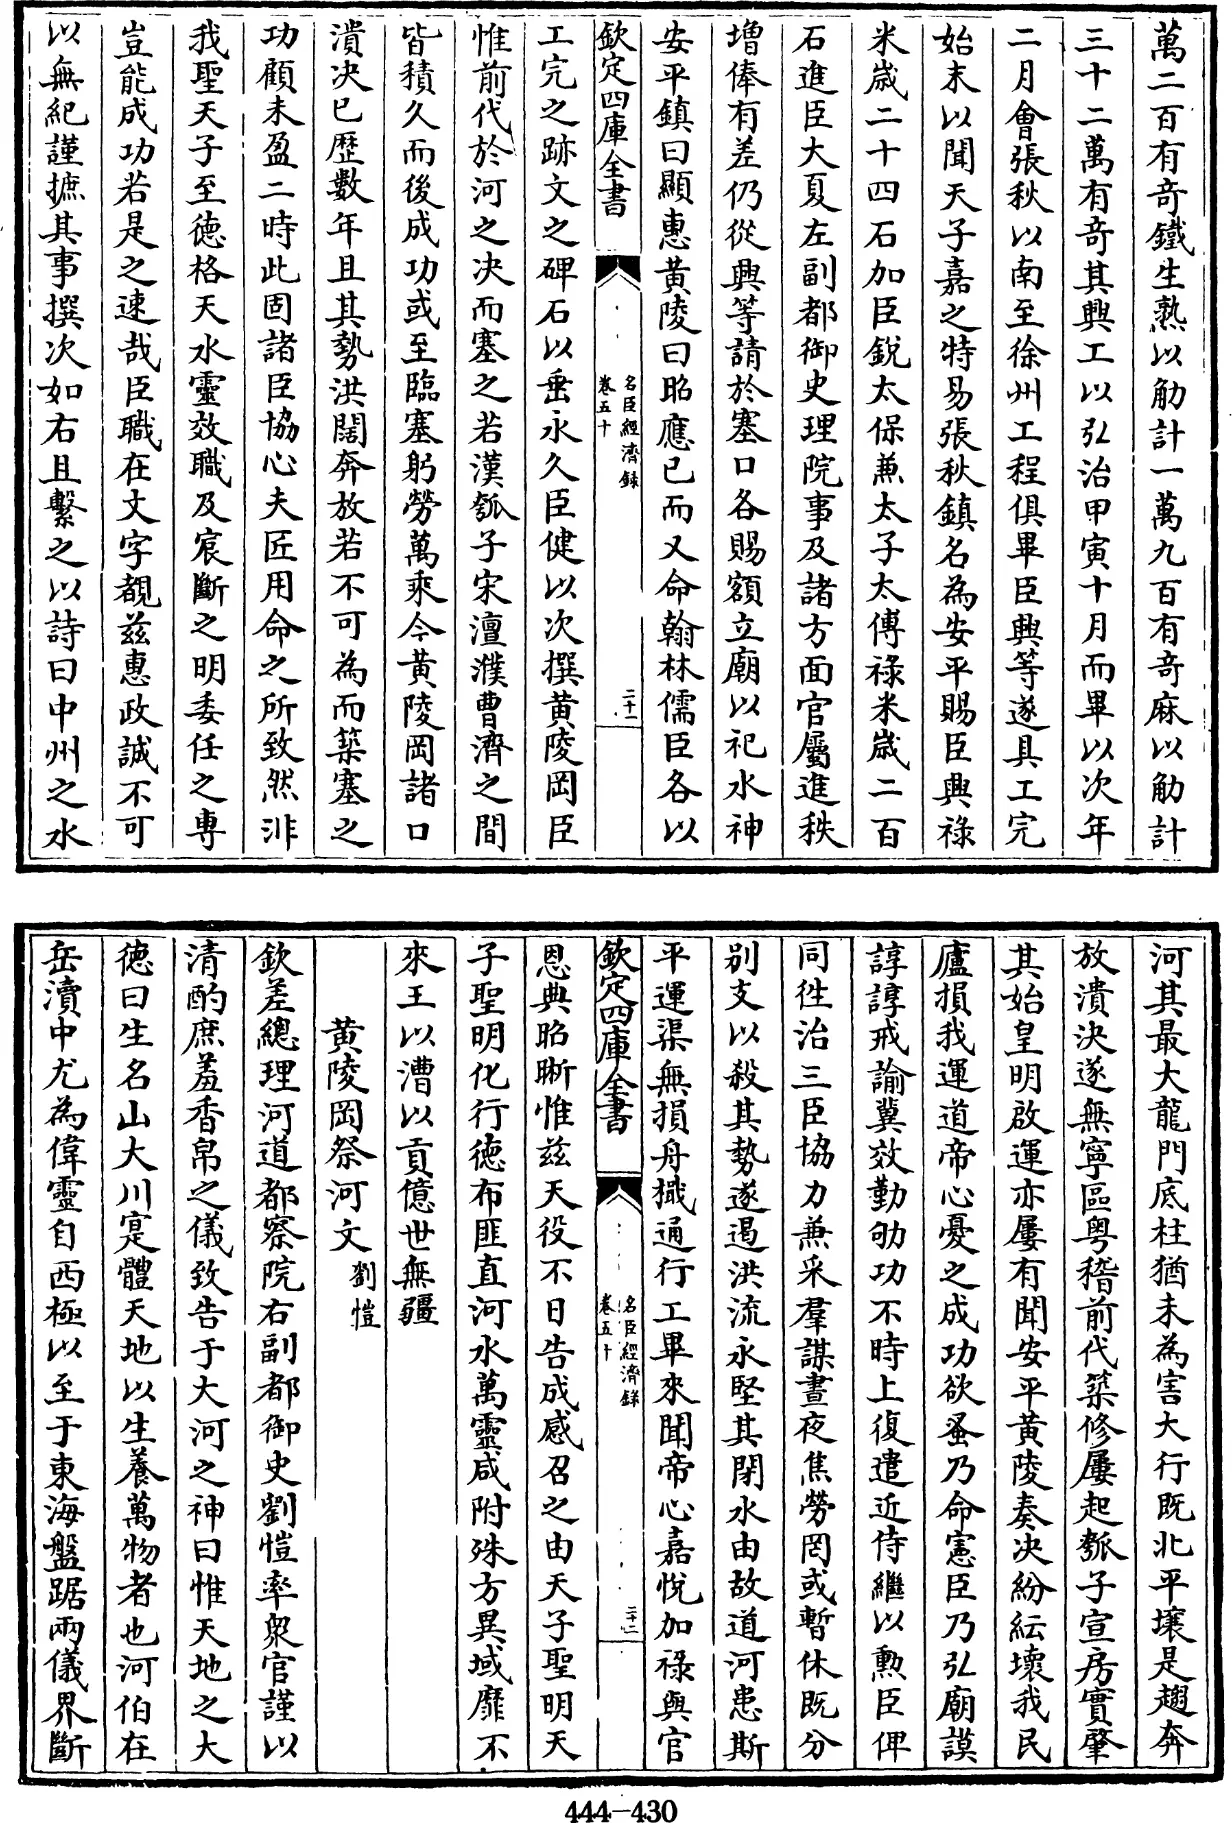 萬二百有奇鐵生熟以觔計一萬九百有奇麻以觔計
三十二萬有奇其興工以弘治甲寅十月而畢以次年
二月會張秋以南至徐州工程俱畢臣興等遂具工完
始末以聞天子嘉之特易張秋鎮名為安平賜臣興祿
米歲二十四石加臣銳太保兼太子太傅祿米歲二百
石進臣大夏左副都御史理院事及諸方面官屬進秩
增俸有差仍從興等請於塞口各賜額立廟以祀水神
安平鎮曰顯惠黃陵曰昭應已而又命翰林儒臣各以
欽定四庫全書
名臣經濟錄
卷五十
二十一
工完之跡文之碑石以垂永久臣健以次撰黃陵岡臣
惟前代於河之决而塞之若漢瓠子宋澶濮曹濟之間
皆積久而後成功或至臨塞躬勞萬乘今黃陵岡諸口
潰决已歷數年且其勢洪闊奔放若不可為而築塞之
功顧未盈二時此固諸臣協心夫匠用命之所致然非
我聖天子至德格天水靈效職及宸斷之明委任之專
豈能成功若是之速哉臣職在文字覩茲惠政誠不可
以無紀謹摭其事撰次如右且繫之以詩曰中州之水
河其最大龍門底柱猶未為害大行既北平壤是趨奔
放潰決遂無寧區粤稽前代築修屢起瓠子宣房實肇
其始皇明啟運亦屢有聞安平黃陵奏决紛紜壞我民
廬損我運道帝心憂之成功欲蚤乃命憲臣乃弘廟謨
諄諄戒諭冀效勤劬功不時上復遣近侍繼以勲臣俾
同徃治三臣協力兼采羣謀晝夜焦勞罔或暫休既分
别支以殺其勢遂遏洪流永堅其閉水由故道河患斯
平運渠無損舟檝通行工畢來聞帝心嘉悅加祿與官
欽定四庫全書
名臣經濟錄
卷五十
二十二
恩典昭晰惟茲天役不日告成感召之由天子聖明天
子聖明化行德布匪直河水萬靈咸附殊方異域靡不
來王以漕以貢億世無疆
黃陵岡祭河文 劉愷
欽差總理河道都察院右副都御史劉愷率衆官謹以
清酌庶羞香帛之儀致告于大河之神曰惟天地之大
德曰生名山大川寔體天地以生養萬物者也河伯在
岳瀆中尤為偉靈自西極以至于東海盤踞兩儀界斷
444-430